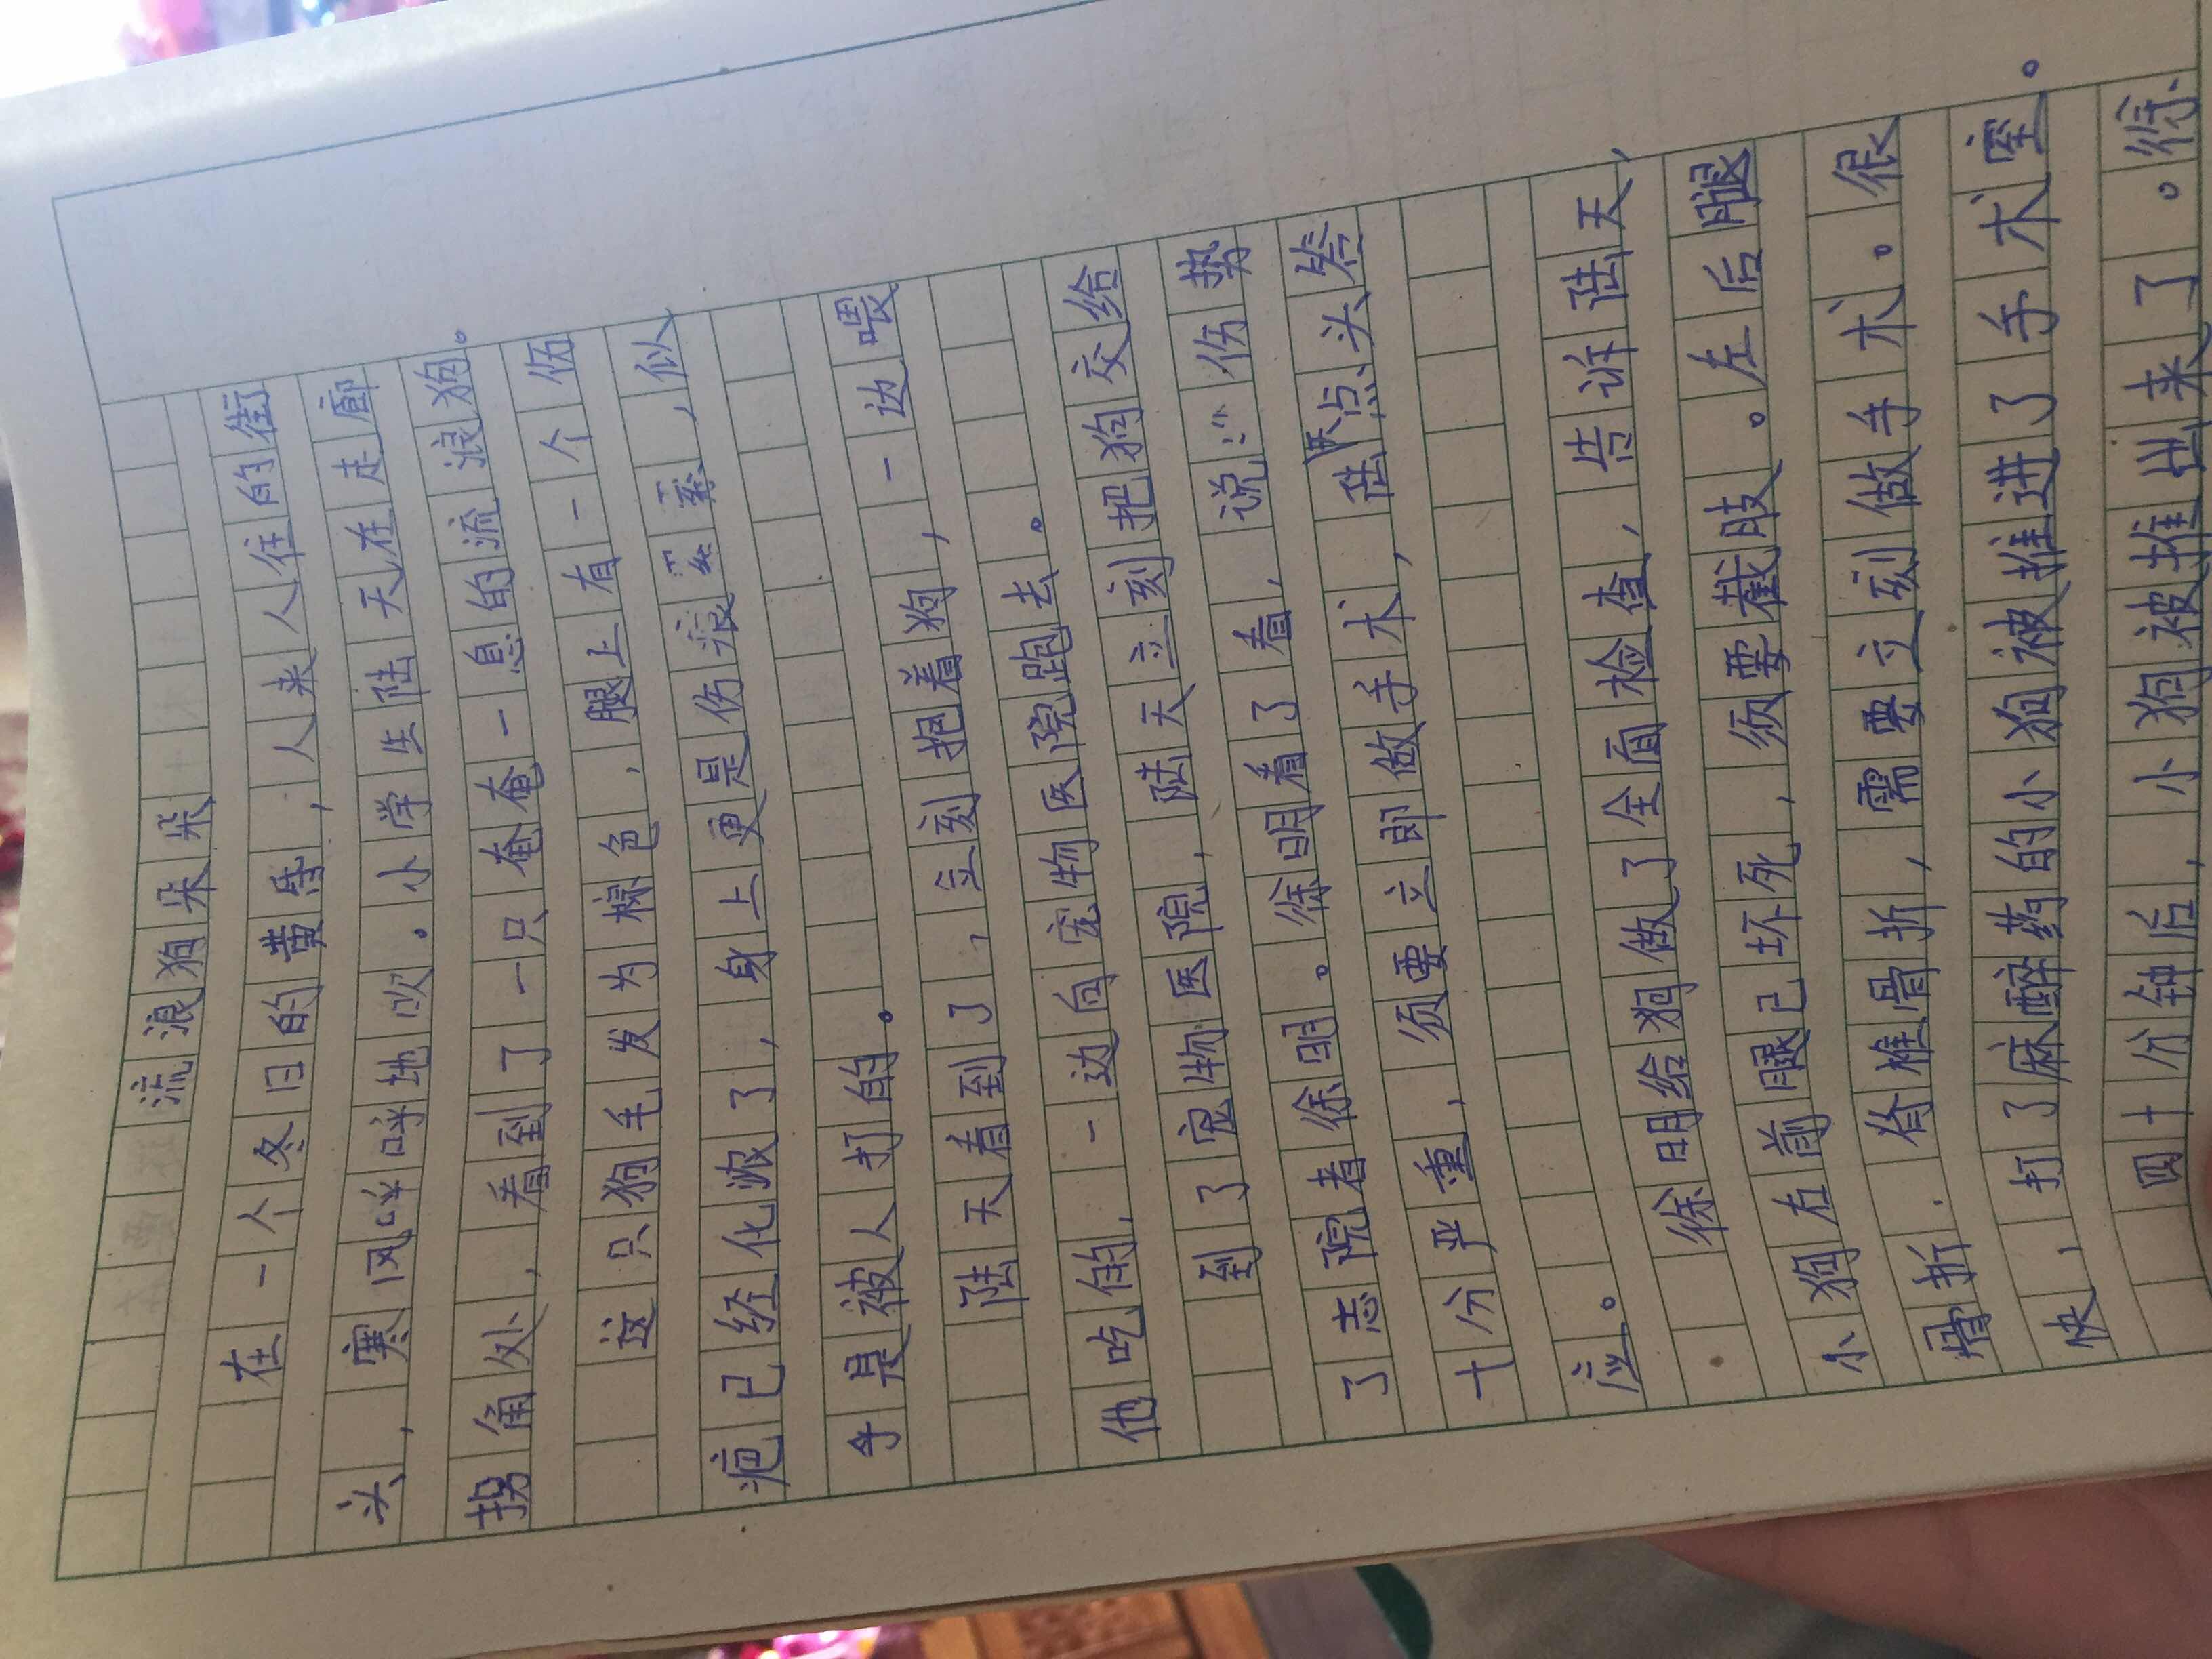 流浪狗朵朵
在一个冬日的黄昏，人来人往的街
头，寒风呼呼地吹.小学生陆天在走廊
拐角处，看到了一只奄奄一息的流浪狗。
这只狗毛发为棕色，腿上有一个伤
疤已经化浓了，身上更是伤痕累累，似
乎是被人打的。
陆天看到了，立刻抱着狗，一边喂
他吃的，一边向宠物医院跑去。
到了宠物医院，陆天立刻把狗交给
了志院者徐明。徐明看了看，说：“伤势
十分严重，须要立即做手术，陆天点头答
应。
徐明给狗做了全面检查，告诉陆天，
小狗左前腿已坏死，须要截肢。左后腿
骨折.脊椎骨折，需要立刻做手术。很
快，打了麻醉药的小狗被推进了手术室。
四十分钟后，小狗被推出来了。徐